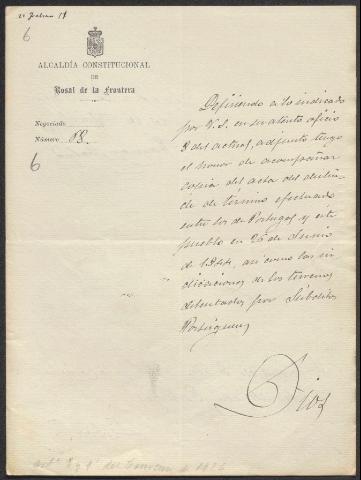 6
ALCALDÍA CONSTITUCIONAL
DE
Rosal de la Frontera
Negociado
Número 88.
6
Defiriendo a lo indicado
por V.S. en su atento oficio
8 del actual, adjunto tengo
el honor de acompañar
copia del acta del deslin-
de de término efectuado
entre los de Portugal y este
pueblo en 26 de Junio
de 1844, asi como las in
dicaciones de los terrenos
detentados por Súbditos
Portugueses
Dios